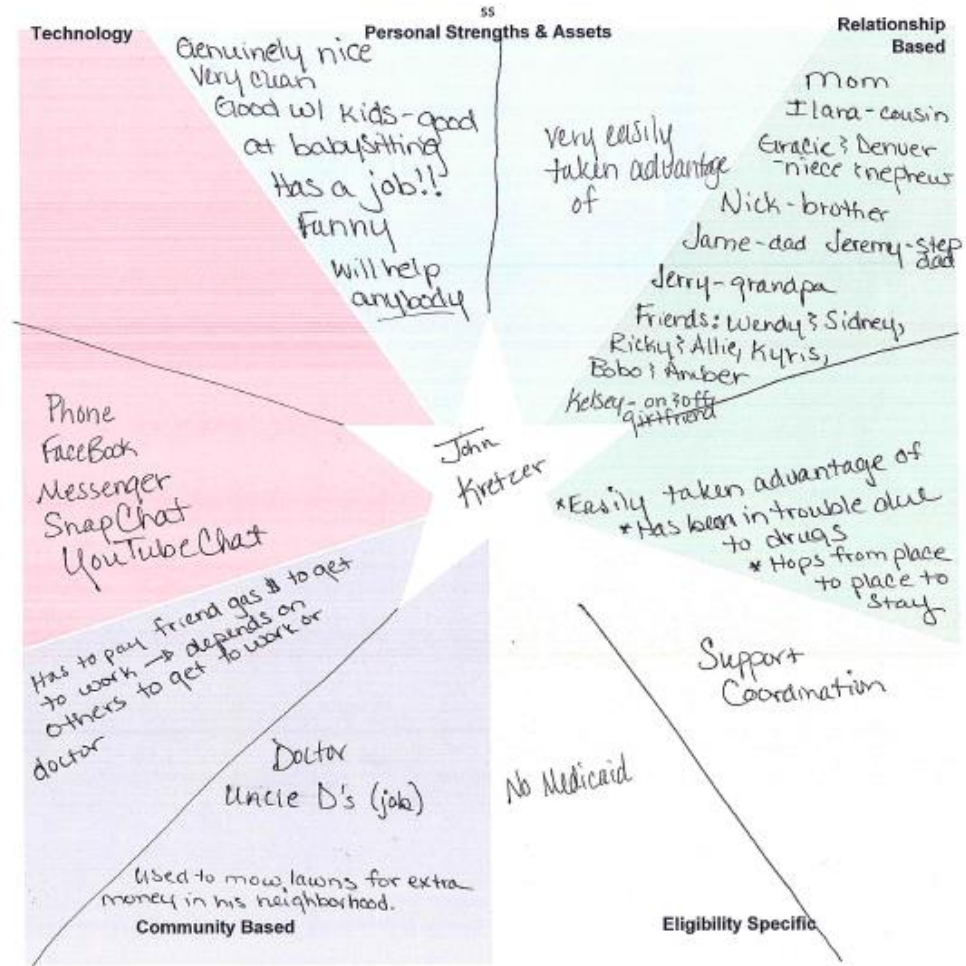 ss
Technology
Personal Strengths & Assets
Relationship
Based
Genuinely nice
Very clean
Good w/ kids-good
at babysitting
Has a job!!
Funny
Will help
anybody
very easily
taken advantage
of
Mom
Ilara-cousin
Gracie & Denver
-niece & nephew
Nick-brother
Jame-dad Jeremy-step
dad
Jerry-grandpa
Friends: Wendy & Sidney,
Ricky & Allie, Kyris,
Bobo & Amber
Kelsey-on & off
girlfriend
Phone
FaceBook
Messenger
SnapChat
YouTubeChat
John
Kretzer
*Easily taken advantage of
*Has been in trouble due
to drugs
*Hops from place
to place to
stay
Has to pay friend gas $ to get
to work → depends on
others to get to work or
doctor
Doctor
Uncle D's (job)
Used to mow lawns for extra
money in his neighborhood.
Community Based
Support
Coordination
No Medicaid
Eligibility Specific